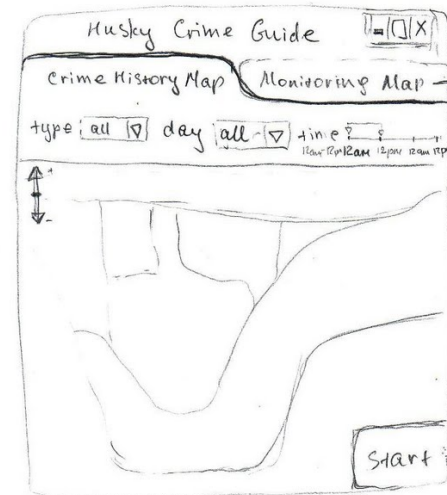 Husky Crime Guide
Crime History Map Monitoring Map
type all day all time
12am 12pm 12am 12pm
+
-
Start